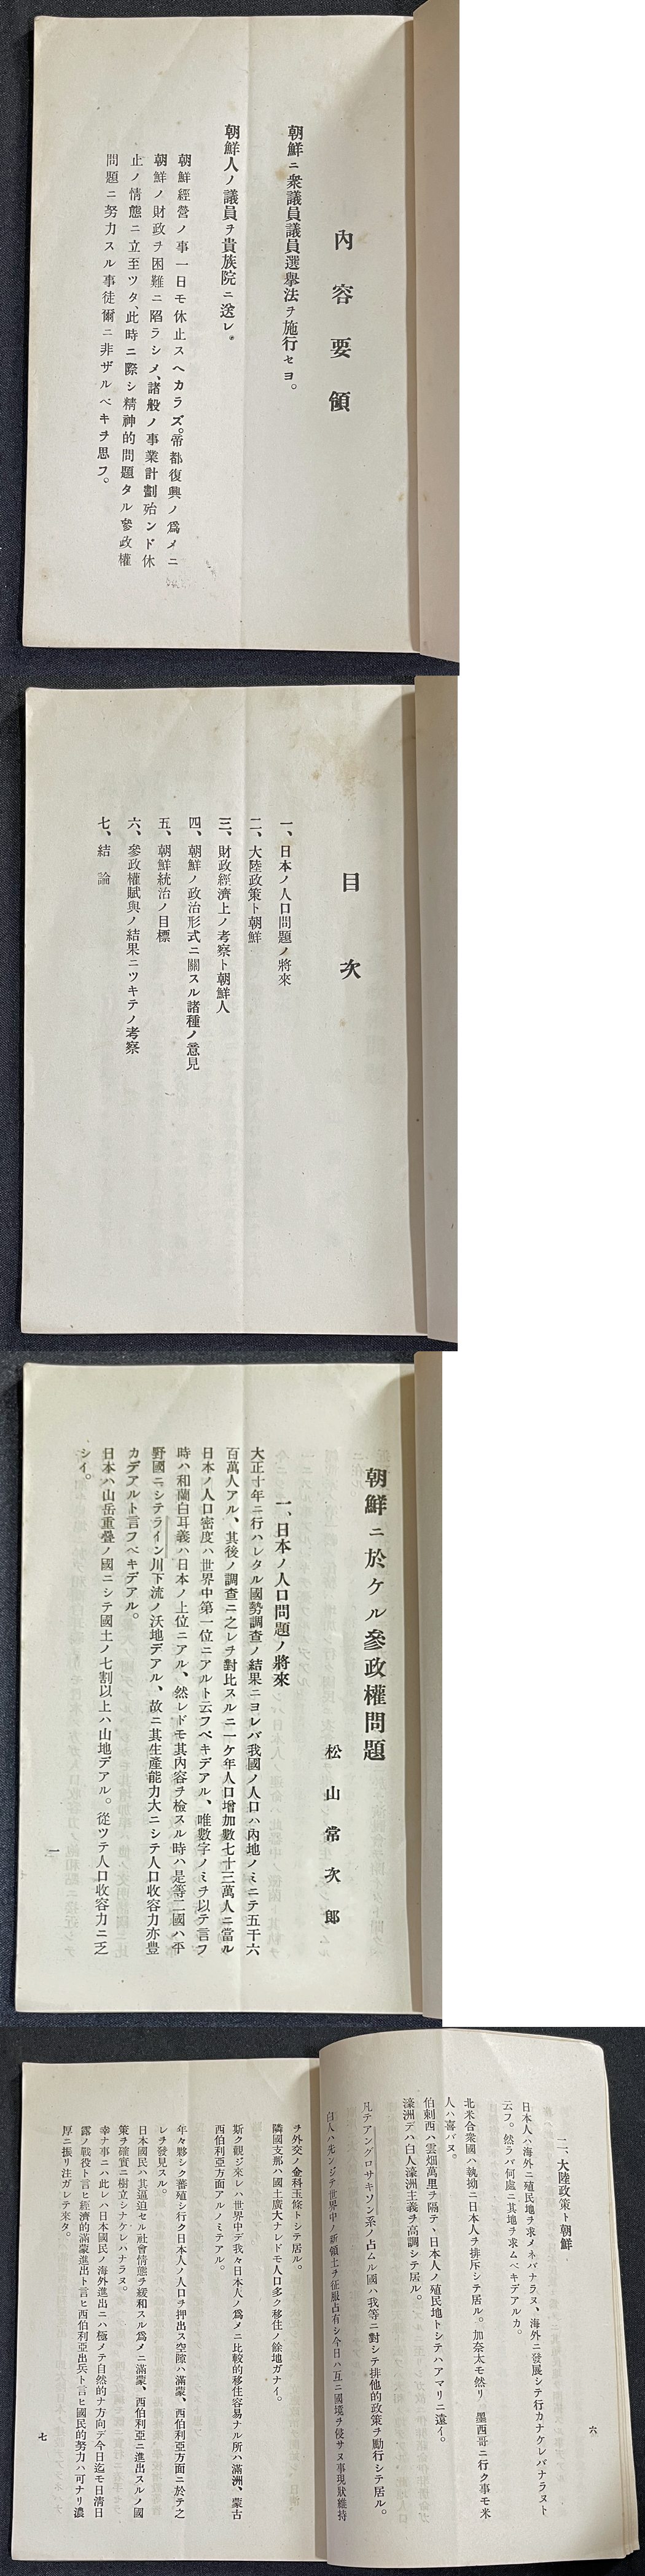 內容要領
朝鮮ニ衆議員議員選擧法ヲ施行セヨ。
朝鮮人ノ議員ヲ貴族院ニ送レ。
朝鮮經營ノ事一日モ休止スヘカラズ。帝都復興ノ爲メニ
朝鮮ノ財政ヲ困難ニ陷ラシメ、諸般ノ事業計劃殆ンド休
止ノ情態ニ立至ツタ、此時ニ際シ精神的問題タル參政權
問題ニ努力スル事徒爾ニ非ザルベキヲ思フ。
目次
一、日本ノ人口問題ノ將來
二、大陸政策ト朝鮮
三、財政經濟上ノ考察ト朝鮮人
四、朝鮮ノ政治形式ニ關スル諸種ノ意見
五、朝鮮統治ノ目標
六、參政權賦與ノ結果ニツキテノ考察
七、結論
朝鮮ニ於ケル參政權問題
松山常次郎
一、日本ノ人口問題ノ將來
大正十年ニ行ハレタル國勢調查ノ結果ニヨレバ我國ノ人口ハ內地ノミニテ五千六
百萬人アル、其後ノ調查ニ之レヲ對比スルニ一ケ年人口增加數七十三萬人ニ當ル
日本ノ人口密度ハ世界中第一位ニアルト云フベキデアル、唯數字ノミヲ以テ言フ
時ハ和蘭白耳義ハ日本ノ上位ニアル、然レドモ其內容ヲ檢スル時ハ是等二國ハ平
野國ニシテライン川下流ノ沃地デアル、故ニ其生產能力大ニシテ人口收容力亦豊
カデアルト言フベキデアル。
日本ハ山岳重疊ノ國ニシテ國土ノ七割以上ハ山地デアル。從ツテ人口收容力ニ乏
シイ。
一
二、大陸政策ト朝鮮
日本人ハ海外ニ殖民地ヲ求メネバナラヌ、海外ニ發展シテ行カナケレバナラヌト
云フ。然ラバ何處ニ其地ヲ求ムベキデアルカ。
北米合衆國ハ執拗ニ日本人ヲ排斥シテ居ル。加奈太モ然リ 墨西哥ニ行ク事モ米
人ハ喜バヌ。
伯剌西ハ雲烟萬里ヲ隔テ、日本人ノ殖民地トシテハアマリニ遠イ。
濠洲デハ白人濠洲主義ヲ高調シテ居ル。
凡テアングロサキソン系ノ占ムル國ハ我等ニ對シテ排他的政策ヲ勵行シテ居ル。
白人ハ先ンジテ世界中ノ新領土ヲ征服占有シ今日ハ互ニ國境ヲ侵サヌ事現狀維持
六
ヲ外交ノ金科玉條トシテ居ル。
隣國支那ハ國土廣大ナレドモ人口多ク移住ノ餘地ガナイ。
斯ク觀ジ來レハ世界中デ我々日本人ノ爲メニ比較的移住容易ナル所ハ滿洲、蒙古
西伯利亞方面アルノミテアル。
年々夥シク蕃殖シ行ク日本人ノ人口ヲ押出ス空隙ハ滿蒙、西伯利亞方面ニ於テ之
レヲ發見スル。
日本國民ハ其逼迫セル社會情態ヲ緩和スル爲メニ滿蒙、西伯利亞ニ進出スルノ國
策ヲ確實ニ樹立シナケレハナラヌ。
幸ナ事ニハ此レハ日本國民ノ海外進出ニハ極メテ自然的ナ方向デ今日迄モ日清日
露ノ戰役ト言ヒ經濟的滿蒙進出ト言ヒ西伯利亞出兵ト言ヒ國民的努力ハ可ナリ濃
厚ニ振リ注ガレテ來タ。
七